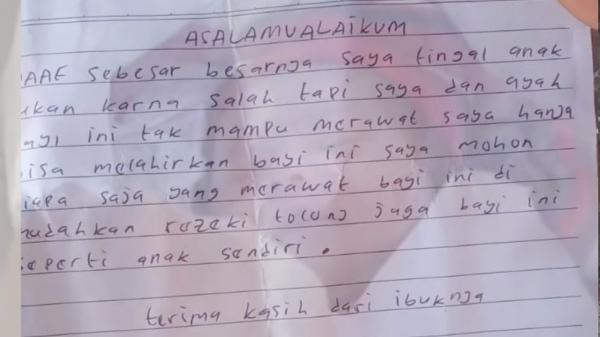 ASALAMUALAIKUM
AAF sebesar besarnya saya tingal anak
ukan karna salah tapi saya dan ayah
ayi ini tak mampu merawat saya hanya
isa melahirkan bayi ini saya mohon
iapa saja yang merawat bayi ini di
mudahkan rezeki tolong jaga bayi ini
seperti anak sendiri.
terima kasih dari ibuknya